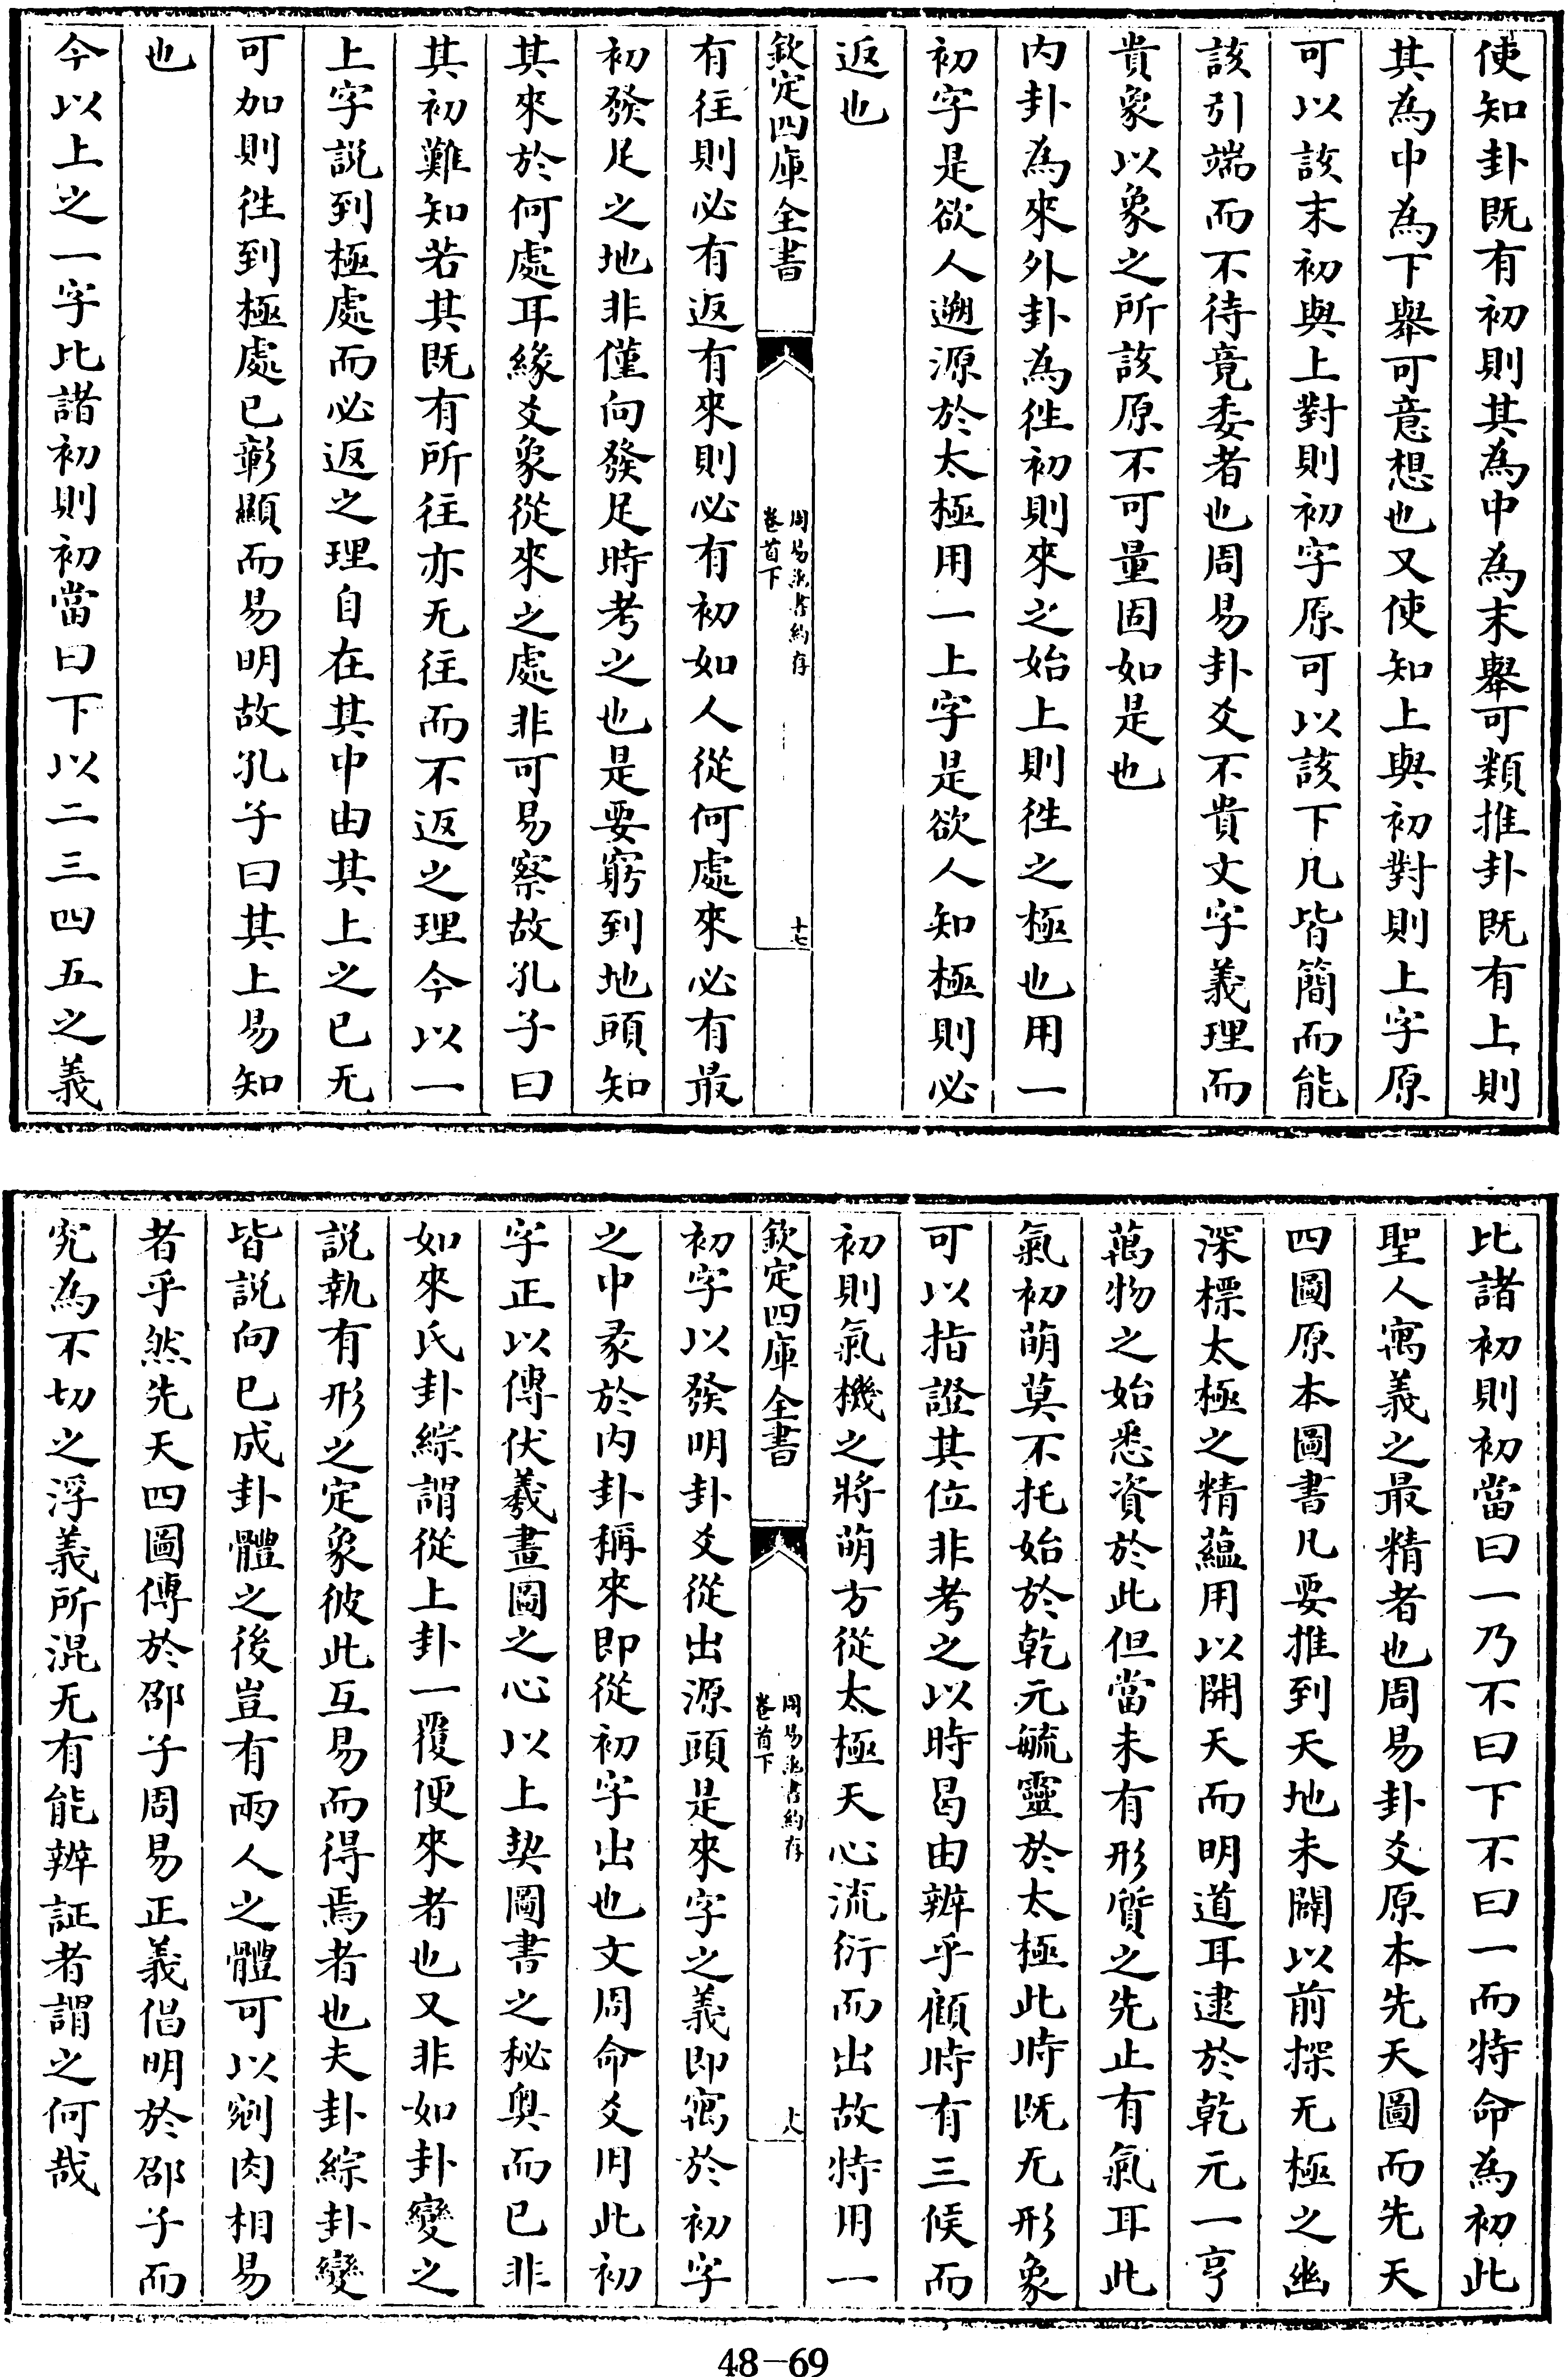 使知卦既有初則其為中為末舉可類推卦既有上則
其為中為下舉可意想也又使知上與初對則上字原
可以該末初與上對則初字原可以該下凡皆簡而能
該引端而不待竟委者也周易卦爻不貴文字義理而
貴象以象之所該原不可量固如是也
内卦為來外卦為徃初則來之始上則徃之極也用一
初字是欲人遡源於太極用一上字是欲人知極則必
返也
欽定四庫全書
周易函書約存
卷首下
十七
有往則必有返有來則必有初如人從何處來必有最
初發足之地非僅向發足時考之也是要窮到地頭知
其來於何處耳緣爻象從來之處非可易察故孔子曰
其初難知若其既有所往亦无往而不返之理今以一
上字説到極處而必返之理自在其中由其上之已无
可加則徃到極處已彰顯而易明故孔子曰其上易知
也
今以上之一字比諸初則初當曰下以二三四五之義
比諸初則初當曰一乃不曰下不曰一而特命為初此
聖人寓義之最精者也周易卦爻原本先天圖而先天
四圖原本圖書凡要推到天地未闢以前探无極之幽
深標太極之精蘊用以開天而明道耳逮於乾元一亨
萬物之始悉資於此但當未有形質之先止有氣耳此
氣初萌莫不托始於乾元毓靈於太極此時既无形象
可以指證其位非考之以時曷由辨乎顧時有三候而
初則氣機之將萌方從太極天心流衍而出故特用一
欽定四庫全書
周易函書約存
卷首下
十八
初字以發明卦爻從出源頭是來字之義即寓於初字
之中彖於内卦稱來即從初字出也文周命爻用此初
字正以傳伏羲畫圖之心以上契圖書之秘奥而已非
如來氏卦綜謂從上卦一覆便來者也又非如卦變之
説執有形之定象彼此互易而得焉者也夫卦綜卦變
皆説向已成卦體之後豈有兩人之體可以剜肉相易
者乎然先天四圖傳於邵子周易正義倡明於邵子而
究為不切之浮義所混无有能辨証者謂之何哉
48-69